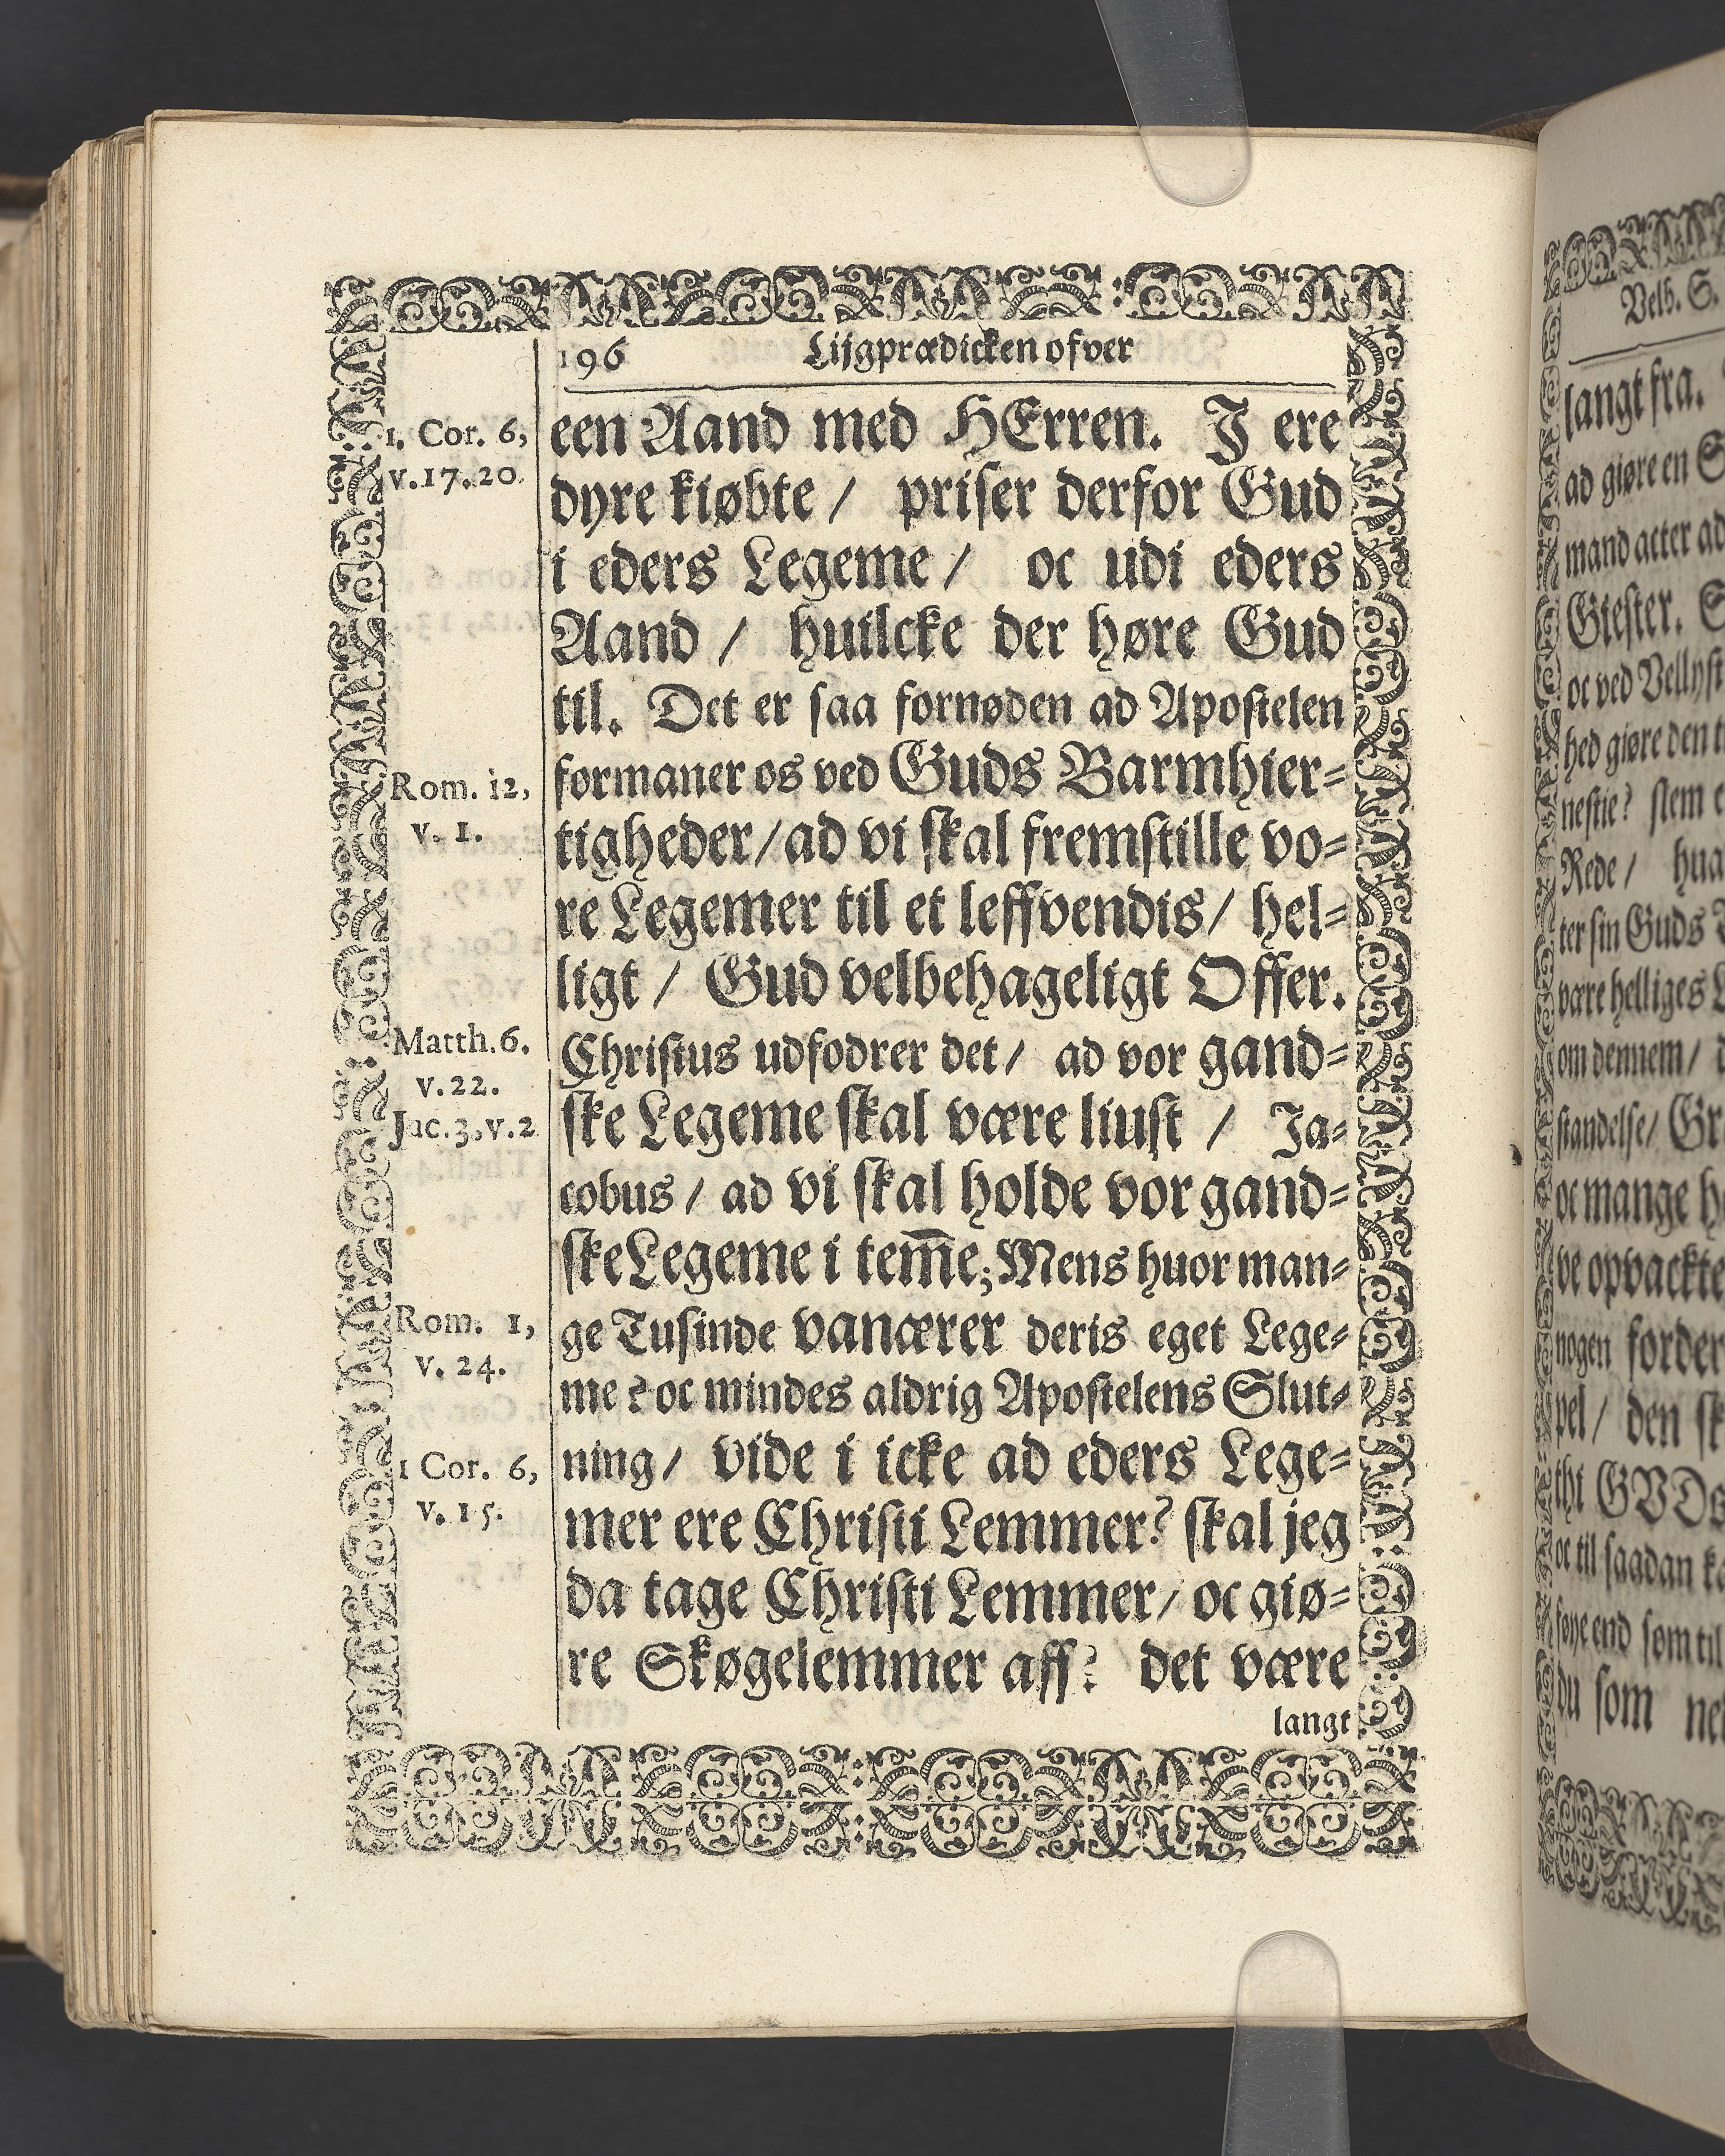 196 Lijgprædicken ofver
1. Cor. 6,
v.17.20.
een Aand med HErren. J ere
dyre kiøbte / priser derfor Gud
i eders Legeme / oc udi eders
Aand / huilcke der høre Gud
til. Det er saa fornøden ad Apostelen
Rom. 12,
v. 1.
formaner os ved Guds Barmhier-
tigheder/ad vi skal fremstille vo-
re Legemer til et leffvendis/ hel-
ligt / Gud velbehageligt Offer.
Matth.6.
v.22.
Jac.3,v.2
Christus udfodrer det/ ad vor gand-
ske Legeme skal være liust / Ja-
cobus/ ad vi skal holde vor gand-
ske Legeme i tem̅e; Mens huor man-
Rom. 1,
v. 24.
ge Tusinde vanærer deris eget Lege-
me? oc mindes aldrig Apostelens Slut-
1 Cor. 6,
v. 15.
ning/ vide i icke ad eders Lege-
mer ere Christi Lemmer? skal jeg
da tage Christi Lemmer/ oc giø-
re Skøgelemmer aff? det være
langt
Velb. S.
langt fra.
ad giøre en
mand acter ad
Giester.
oc ved Vellyst
hed giøre den
nestie? slem
Rede /
ter sin Guds
være helliges
om dennem/
standelse/
oc mange
ve opvackte
nogen forder
pel/ den
thi GVDs
oc til saadan
føye end som til
du som